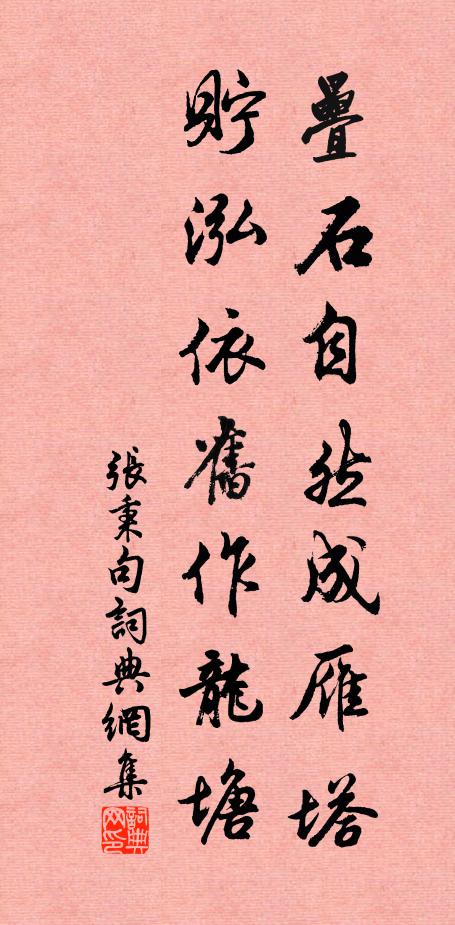 疊石自然成雁塔
貯泓依舊作龍塘
張秉句詞典網集
詞典網印